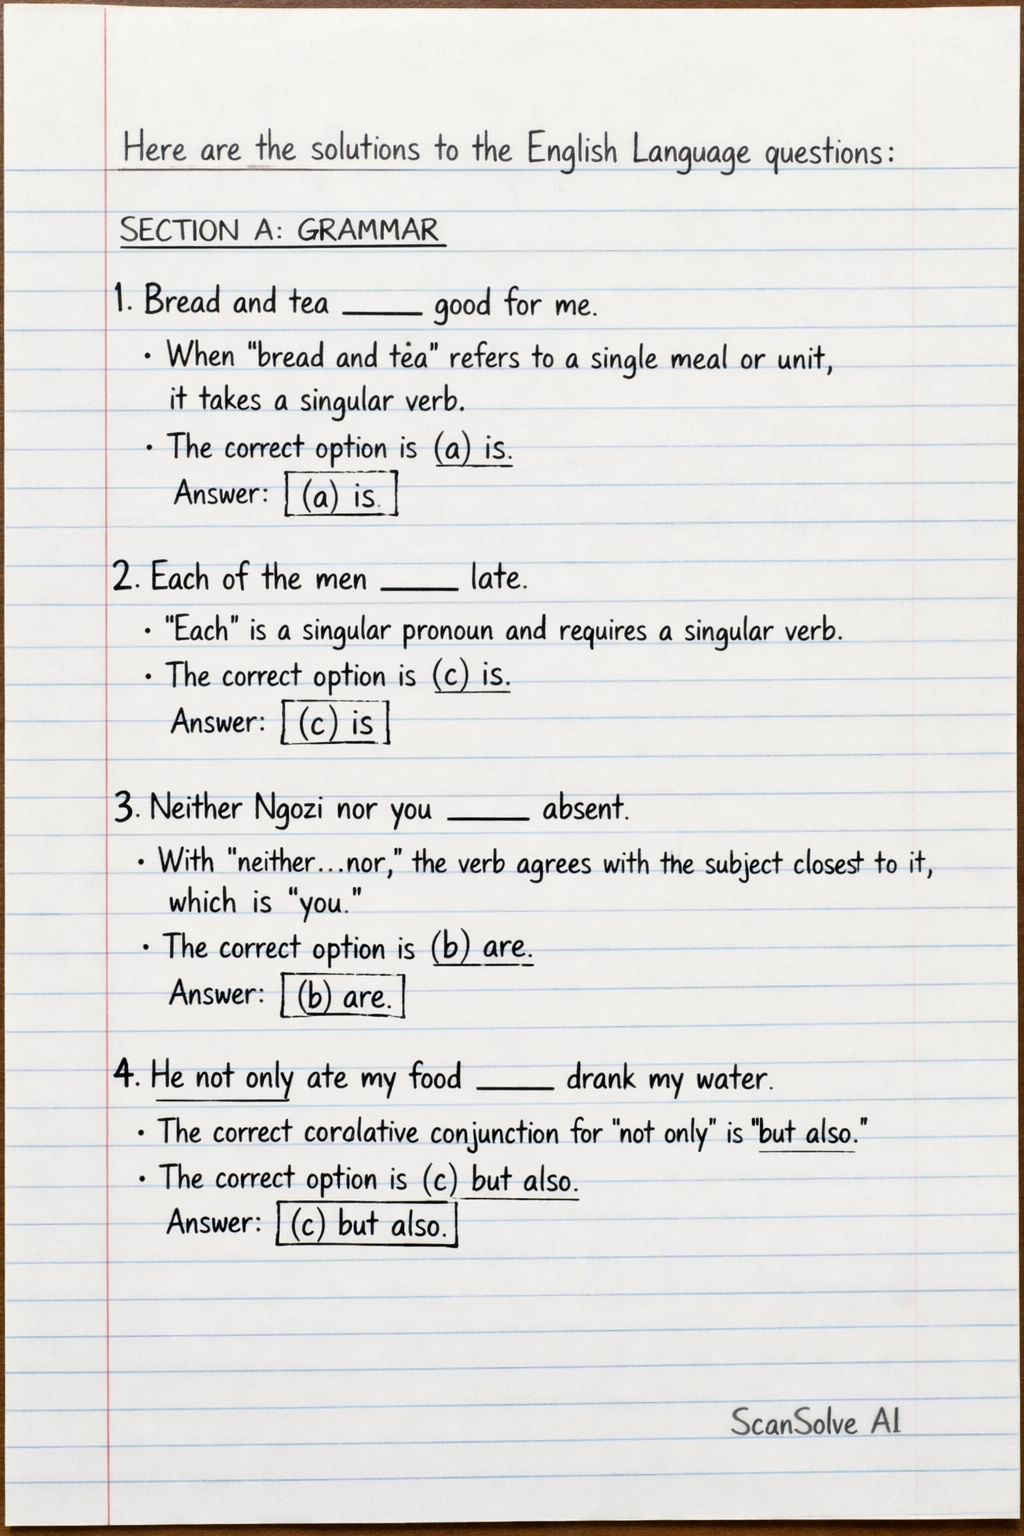 Here are the solutions to the English Language questions:
SECTION A: GRAMMAR
1. Bread and tea _____ good for me.
• When "bread and tea" refers to a single meal or unit,
it takes a singular verb.
• The correct option is (a) is.
Answer: [(a) is.]
2. Each of the men _____ late.
• "Each" is a singular pronoun and requires a singular verb.
• The correct option is (c) is.
Answer: [(c) is]
3. Neither Ngozi nor you _____ absent.
• With "neither...nor," the verb agrees with the subject closest to it,
which is "you."
• The correct option is (b) are.
Answer: [(b) are.]
4. He not only ate my food _____ drank my water.
• The correct corolative conjunction for "not only" is "but also."
• The correct option is (c) but also.
Answer: [(c) but also.]
ScanSolve AI